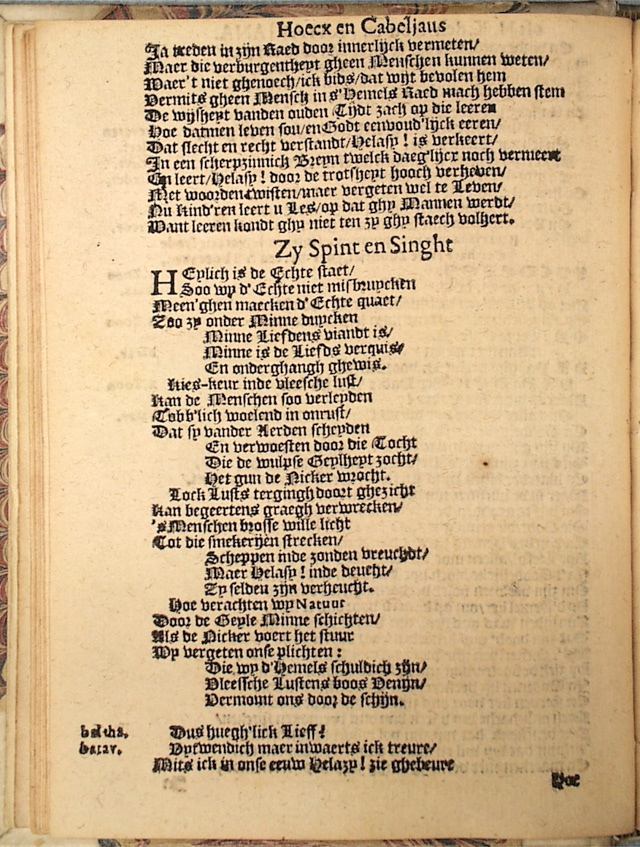 Hoecx en Cabeljaus
Ja treden in zijn Raed door innerlijck vermeten/
Maer die verburgentheyt gheen Menschen kunnen weten/
Waer't niet ghenoech/ick bids/dat wijt bevolen hem
Vermits gheen Mensch in s'Hemels Raed mach hebben stem
De wijsheyt vanden ouden Tijdt zach op die leeren
Hoe datmen leven sou/en Godt eenvoud'lijck eeren/
Dat slecht en recht verstandt/Helasy! is verkeert/
In een scherpzinnick Breyn twelck daeg'lijcx noch vermeert
En leert/Helasy! door de trotsheyt hooch verheven/
Met woorden-twisten/maer vergeten wel te Leven/
Nu kind'ren leert u Les/op dat ghy Mannen werdt/
Want leeren kondt ghy niet ten zy ghy staech volhert.
Zy Spint en Singht
HEylich is de Echte staet/
Soo wy d'Echte niet misbruycken
Meen'ghen maecken d'Echte quaet/
Zoo zy onder Minne duycken
Minne Liefdens viandt is/
Minne is de Liefds verquis/
En onderghangh ghewis.
Kies-keur inde vleesche lust/
Kan de Menschen soo verleyden
Tobb'lich woelend in onrust/
Dat sy vander Aerden scheyden
En verwoesten door die Tocht
Die de wulpse Geylheyt zocht/
Het gun de Nicker wrocht.
Lock Lusts tergingh doort ghezicht
Kan begeertens graegh verwrecken/
's Menschen brosse wille licht
Tot die smekerijen strecken/
Scheppen inde zonden vreuchdt/
Maer Helasy! inde deucht/
Zy selden zijn verheucht.
Hoe verachten wy Natuur
Door de Geyle Minne schichten/
Als de Nicker voert het stuur
Wy vergeten onse plichten:
Die wy d'Hemels schuldich zijn/
Vleessche Lustens boos Venijn/
Vermomt ons door de schijn.
baltha. Dus huegh'lick Lieff!
batav. Uytwendich maer inwaerts ick treure/
Mits ick in onse eeuw Helazy! zie ghebeure
Hoe